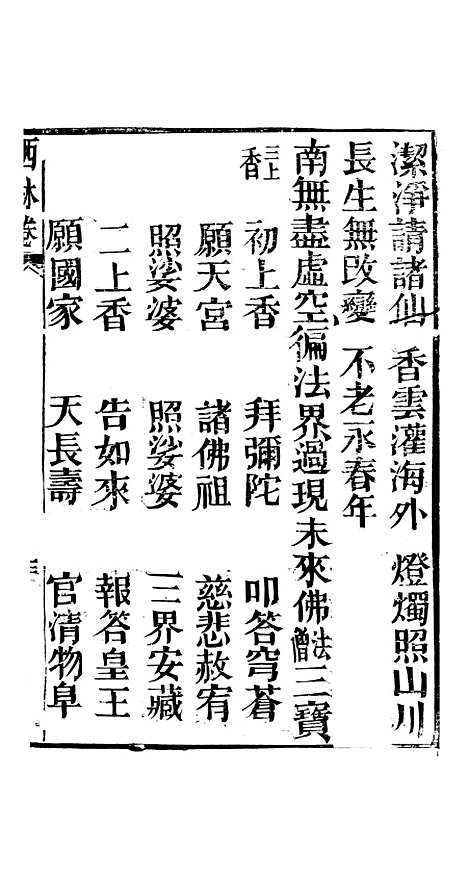 潔淨請諸仙 香雲灌海外 燈燭照山川
長生無改變 不老永春年
南無盡虛空徧法界過現未來佛法僧三寶
三上香 初上香 拜彌陀 叩答穹蒼
願天宮 諸佛祖 慈悲赦宥
照娑婆 照娑婆 三界安藏
二上香 告如來 報答皇王
願國家 天長壽 官清物阜
西林卷
三